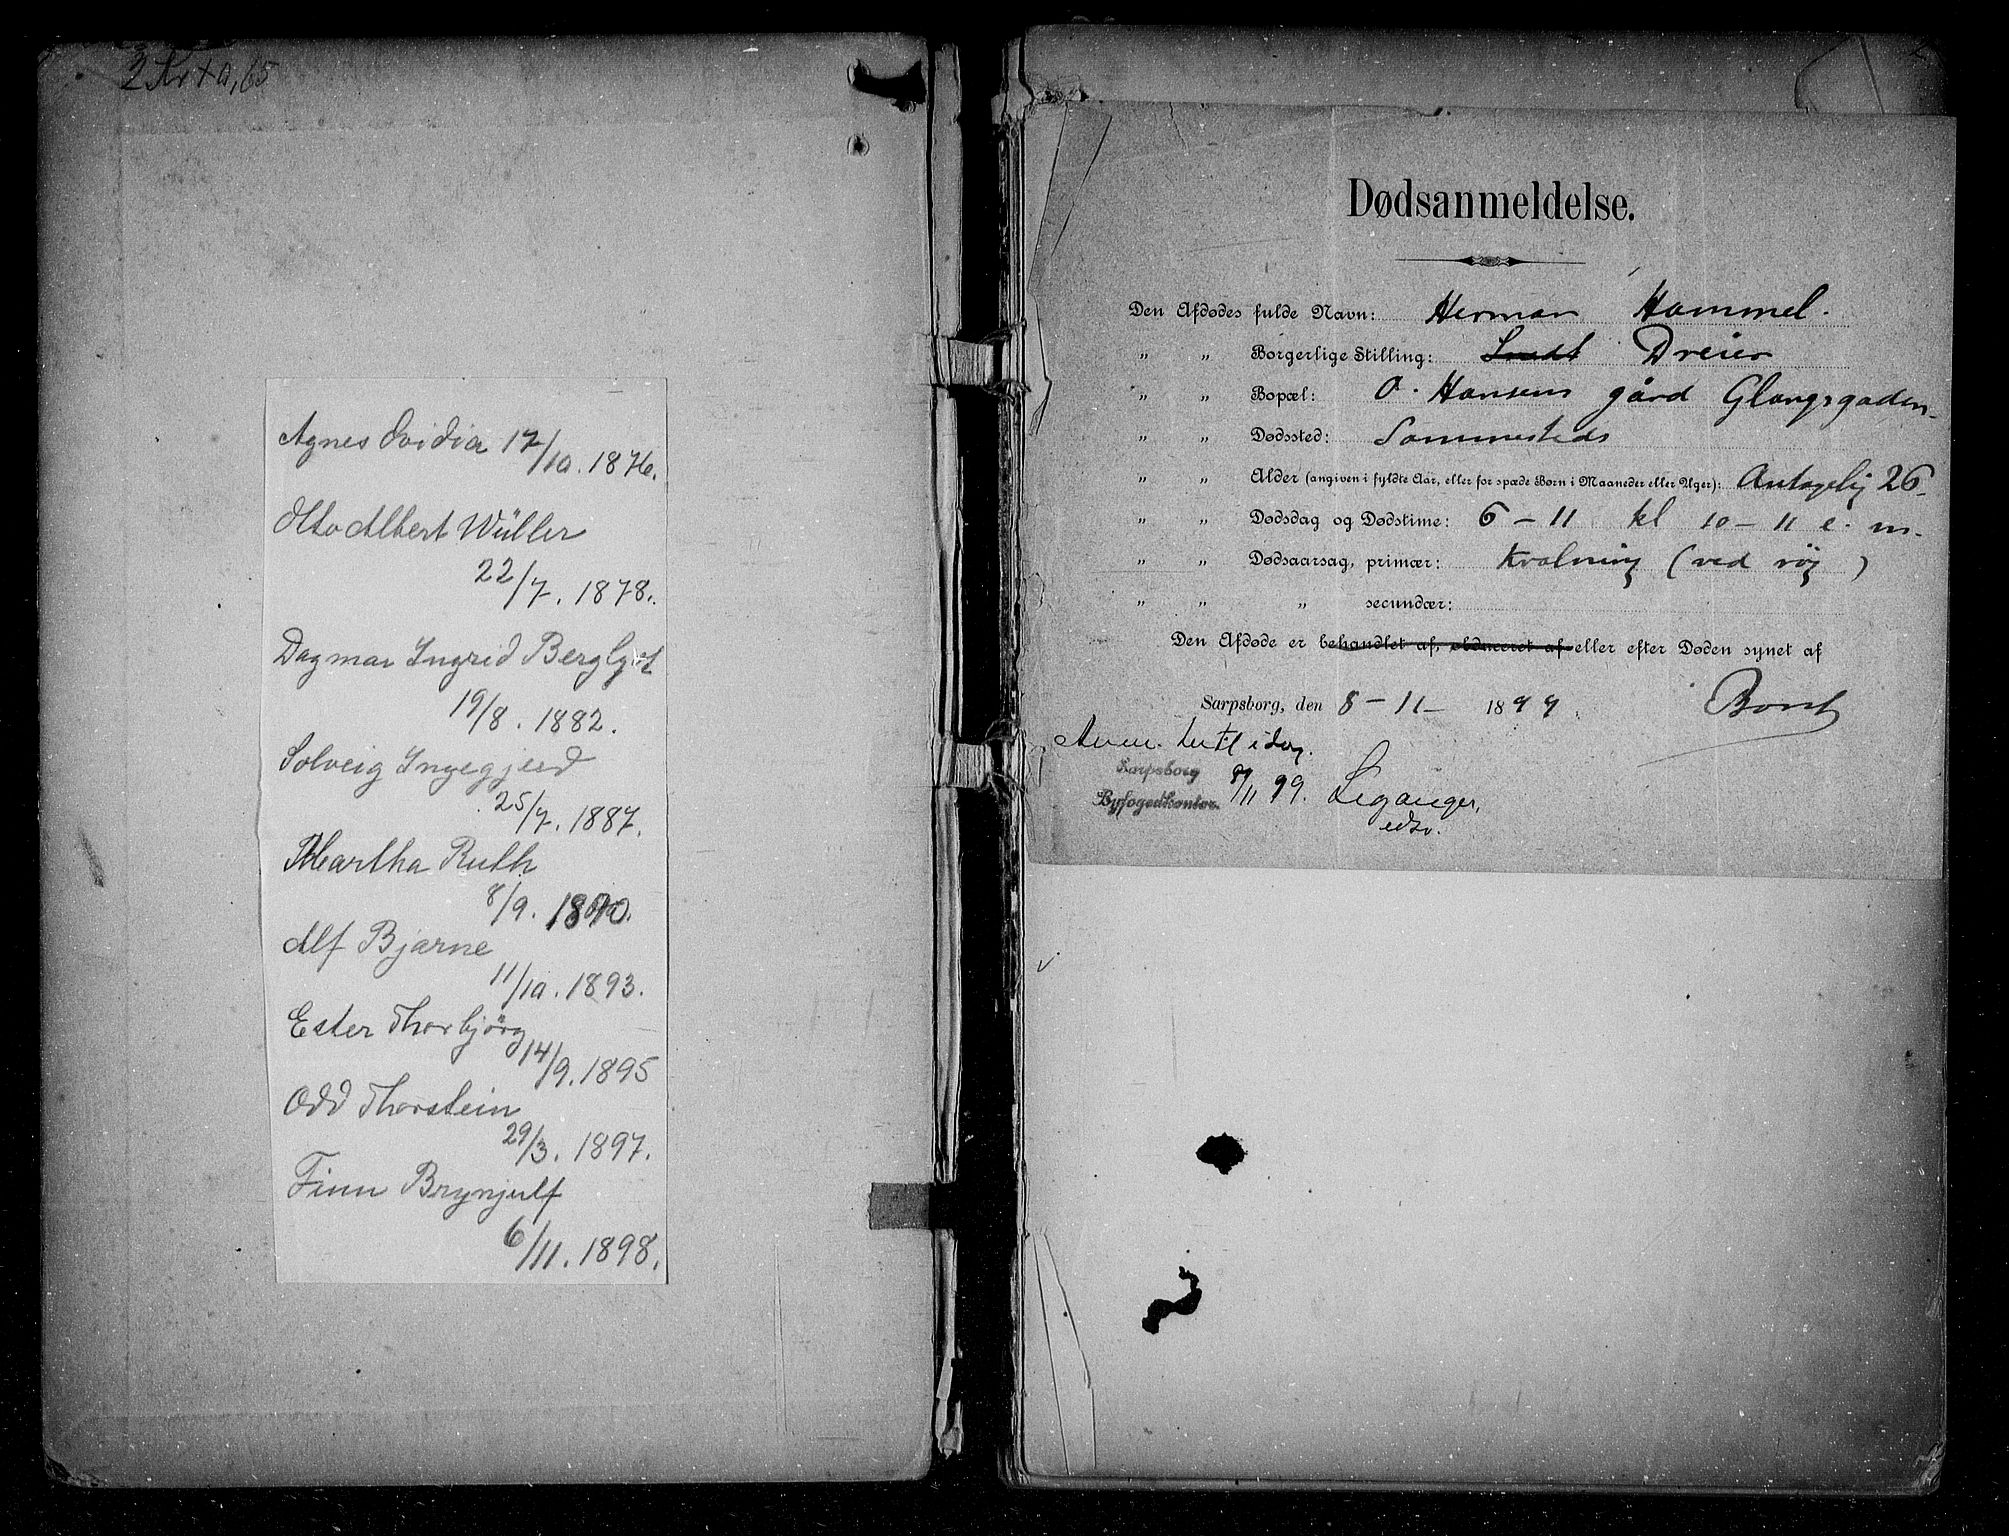 2 Kr + 0,65
Agnes Ovidia 17/10. 1876.
Otto Albert Wüller
22/7. 1878.
Dagmar Ingrid Bergljot
19/8. 1882.
Solveig Ingegjerd
25/7. 1887.
Martha Ruth
8/9. 1890.
Alf Bjarne
11/10. 1893.
Ester Thorbjörg
14/9. 1895
Odd Thorstein
29/3. 1897.
Finn Brynjulf
6/11. 1898.
Dødsanmeldelse.
Den Afdødes fulde Navn: Herman Hammel.
„ „ Borgerlige Stilling: Smedt Dreier
„ „ Bopæl: O. Hansens gård Glengsgaden
„ „ Dødssted: Sammesteds
„ „ Alder (angiven i fyldte Aar, eller for spæde Børn i Maaneder eller Uger): Antagelig 26
„ „ Dødsdag og Dødstime: 6 – 11 kl 10 – 11 e. m.
„ „ Dødsaarsag, primær: Kvælning (ved røg)
„ „ „ secundær:
Den Afdøde er behandlet af, obduceret af eller efter Døden synet af
Sarpsborg, den 8 – 11 – 1899
Anm. hertil idag.
Sarpsborg
Byfogedkontor. 9/11 99. Leganger,